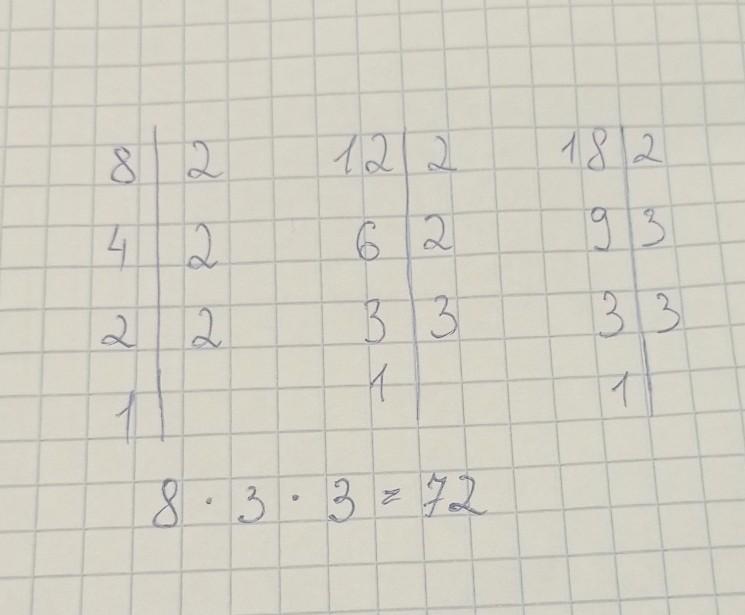 8 | 2 12 | 2 18 | 2
4 | 2 6 | 2 9 | 3
2 | 2 3 | 3 3 | 3
1 | 1 | 1 |
8 · 3 · 3 = 72